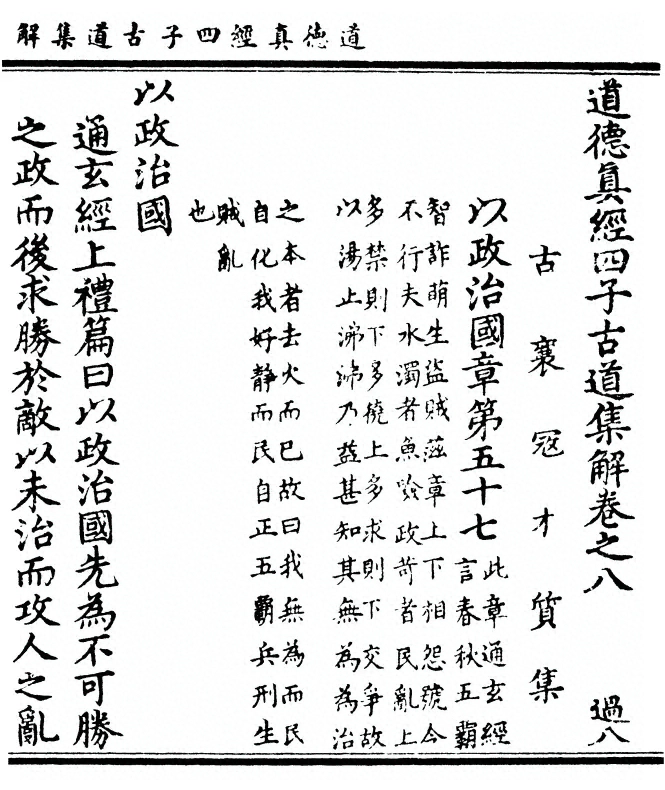 道德真經四子古道集解
道德真經四子古道集解卷之八　過八
古襄寇才質集
以政治國章第五十七
此章通玄經
言春秋五霸
智詐萌生盜賊滋章上下相怨號令
不行夫水濁者魚噞政苛者民亂上
多禁則下多僥上多求則下交爭故
以湯止沸沸乃益甚知其無為為治
之本者去火而已故曰我無為而民
自化我好靜而民自正五霸兵刑生
賊亂
也
以政治國
通玄經上禮篇曰以政治國先為不可勝
之政而後求勝於敵以未治而攻人之亂